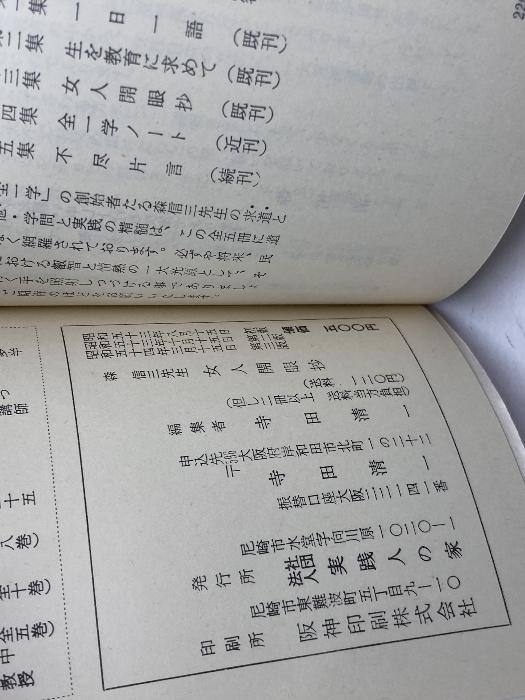 一集 一日一語 (既刊)
二集 生を教育に求めて (既刊)
三集 女人開眼抄 (既刊)
四集 全一学ノート (近刊)
五集 不尽片言 (続刊)
全一学」の創始者たる森信三先生の求道と
学問と実践の精髄は、この全五冊に遺
なく網羅されております。必ずや将来、民
における叡智と情熱の一大光源として、そ
昭和五十三年八月十五日
昭和五十四年三月十五日
価 五〇〇円
森 信三先生 女人開眼抄
(送料 一二〇円)
(但し三冊以上 送料当方負担)
編集者 寺田清一
申込先 〒 大阪府岸和田市北町一の三十二
寺田清一
振替口座大阪三三一四一番
尼崎市水堂字向川原一〇三〇ー一
発行所 社団法人 実践人の家
尼崎市東難波町五丁目九ー二〇
印刷所 阪神印刷株式会社
講師
十五
八巻)
全十巻)
全五巻)
中
教授